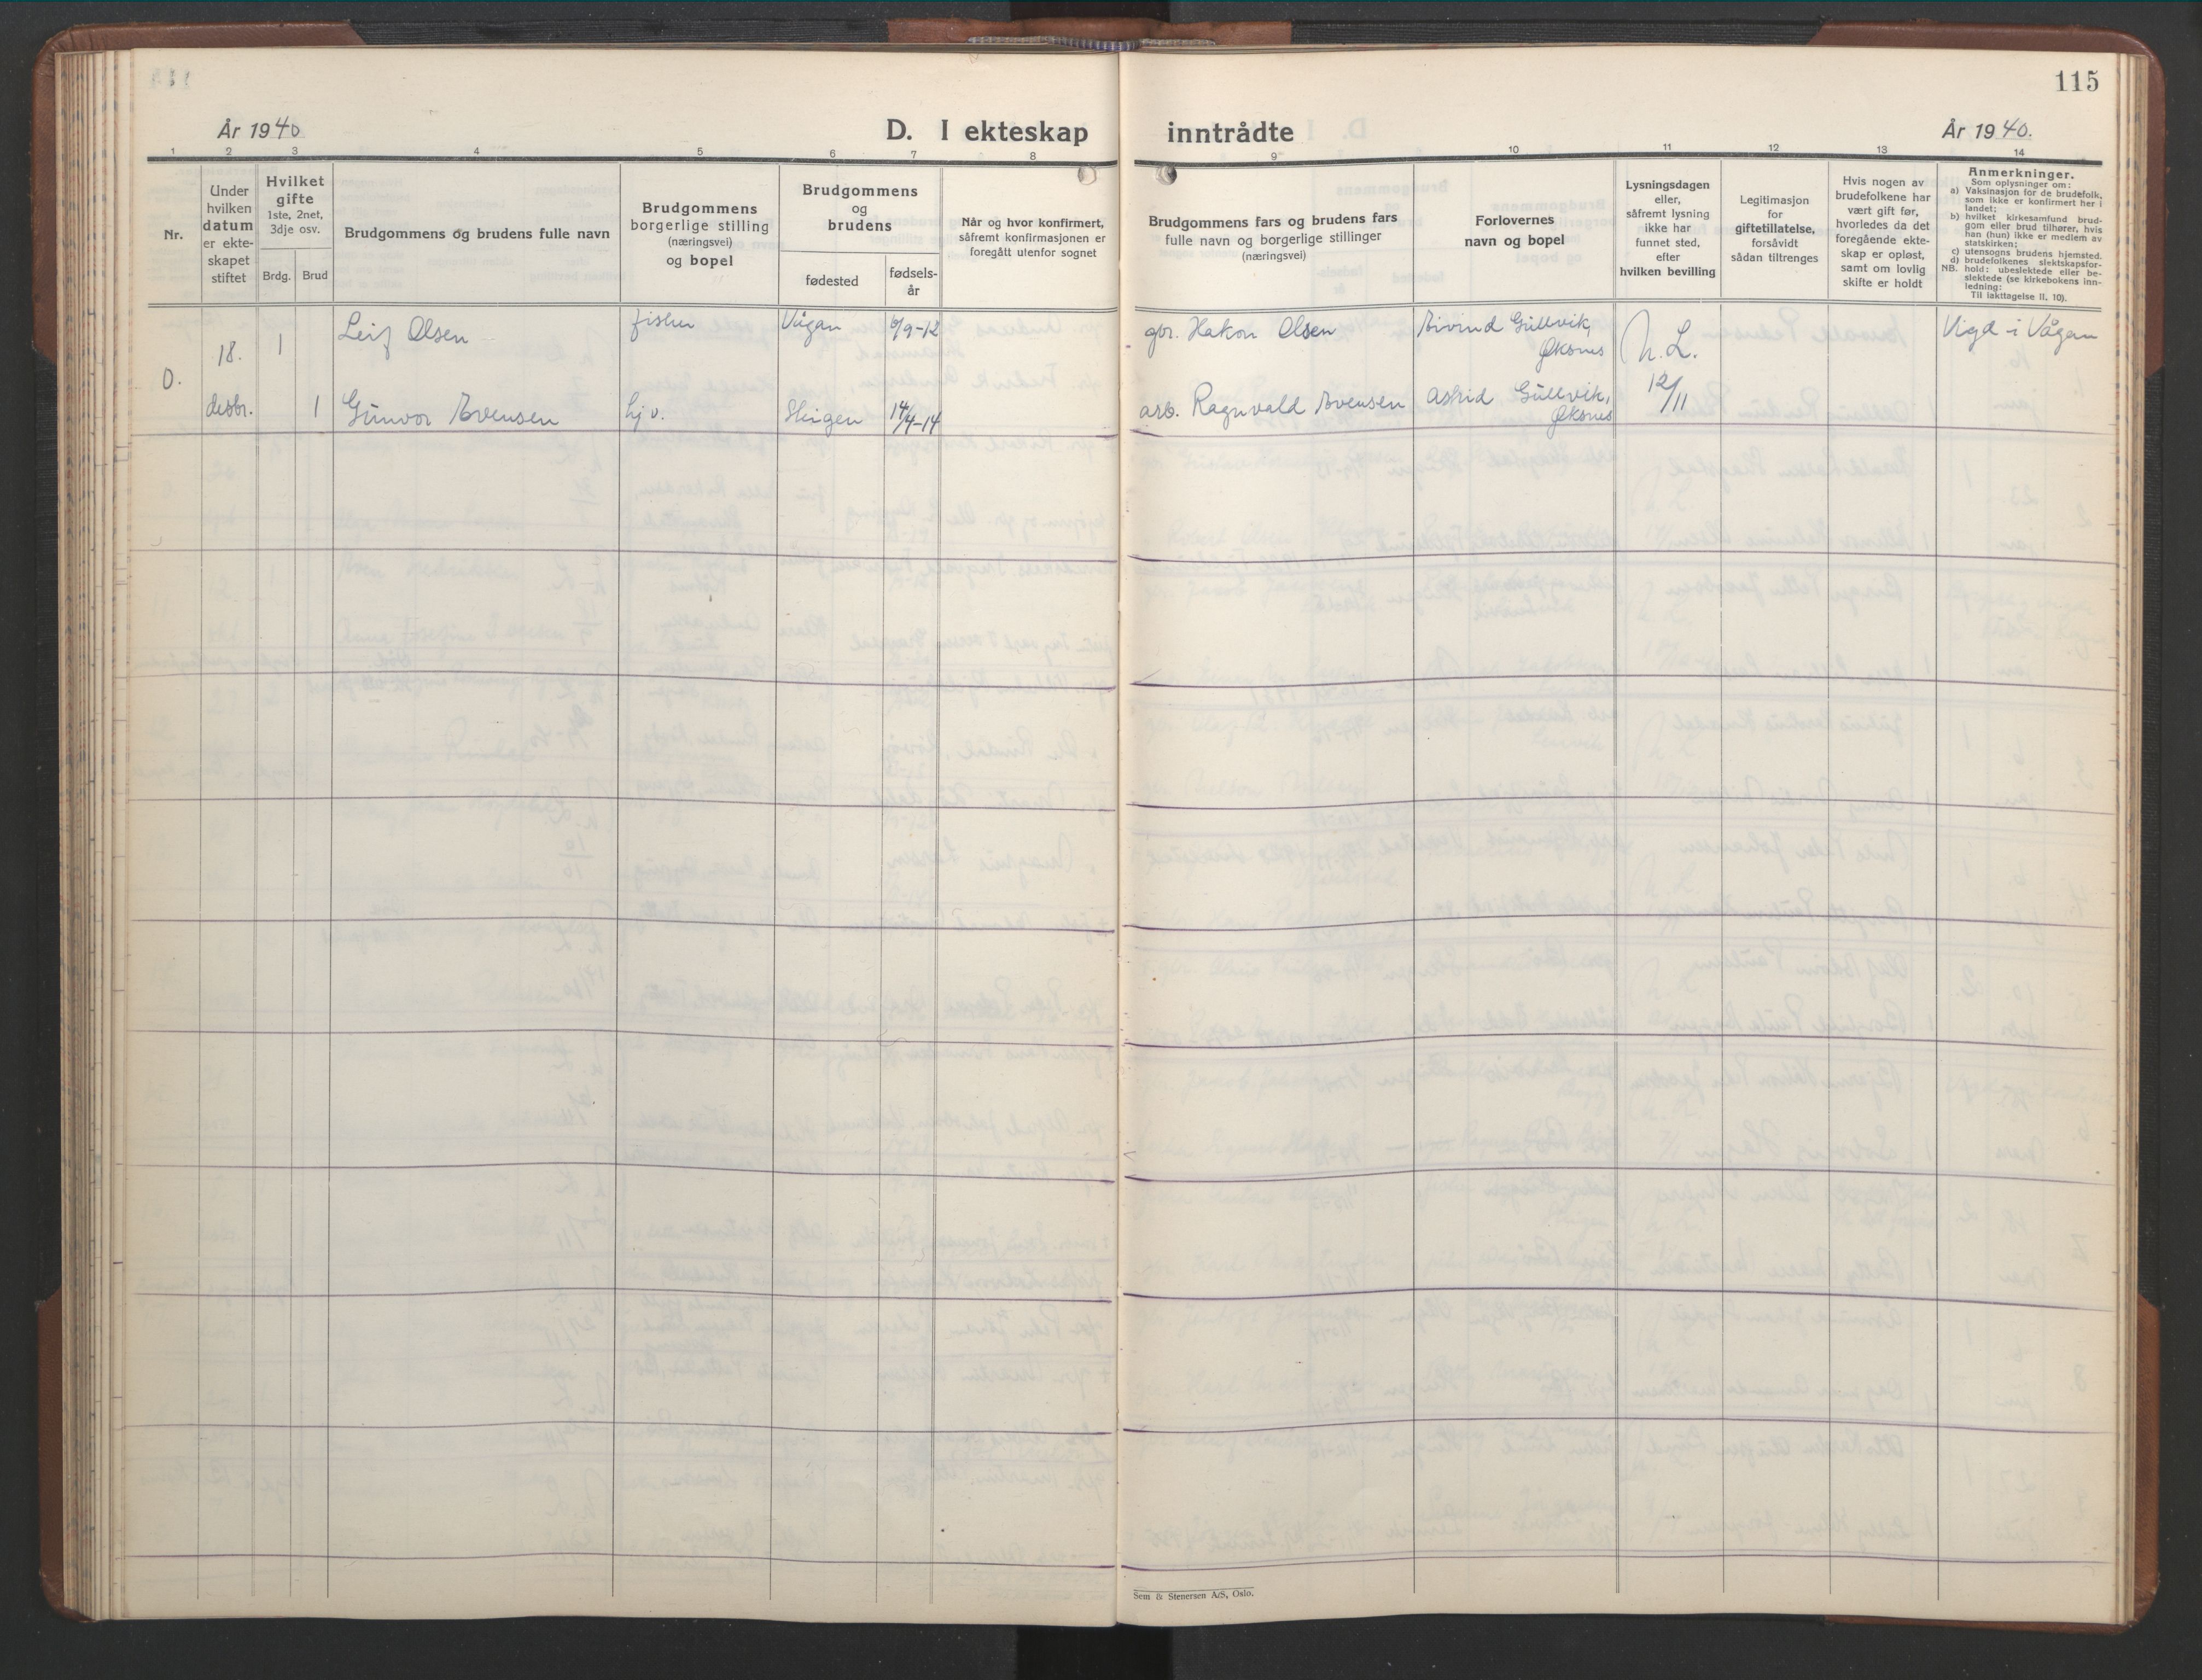 115
År 1940
D. I ekteskap inntrådte
År 1940.
1 2 3 4 5 6 7 8 9 10 11 12 13 14
Nr.
Under
hvilken
datum
er ekte-
skapet
stiftet
Hvilket
gifte
1ste, 2net,
3dje osv.
Brdg. Brud
Brudgommens og brudens fulle navn
Brudgommens
borgerlige stilling
(næringsvei)
og bopel
Brudgommens
og
brudens
fødested
fødsels-
år
Når og hvor konfirmert,
såfremt konfirmasjonen er
foregått utenfor sognet
Brudgommens fars og brudens fars
fulle navn og borgerlige stillinger
(næringsvei)
Forlovernes
navn og bopel
Lysningsdagen
eller,
såfremt lysning
ikke har
funnet sted,
efter
hvilken bevilling
Legitimasjon
for
giftetillatelse,
forsåvidt
sådan tiltrenges
Hvis nogen av
brudefolkene har
vært gift før,
hvorledes da det
foregående ekte-
skap er opløst,
samt om lovlig
skifte er holdt
Anmerkninger.
Som oplysninger om:
a) Vaksinasjon for de brudefolk,
som ikke er konfirmert her i
landet;
b) hvilket kirkesamfund brud-
gom eller brud tilhører, hvis
han (hun) ikke er medlem av
statskirken;
c) utensogns brudens hjemsted.
d) brudefolkenes slektskapsfor-
NB. hold: ubeslektede eller be-
slektede (se kirkebokens inn-
ledning:
Til iakttagelse II, 10).
0.
18.
desbr.
1 Leif Olsen fisker Vågan 6/9-12
gbr. Hakon Olsen Eivind Gullvik,
Øksnes
h. L.
12/11
Vigd i Vågan
1 Gunvor Evensen hj v. Steigen 14/4-14
arb. Ragnvald Evensen Astrid Gullvik,
Øksnes
Sem & Stenersen A/S, Oslo.